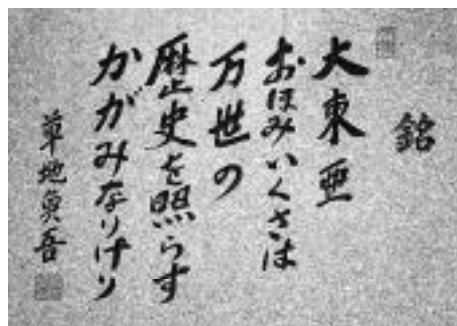 銘
大東亜
おほみいくさは
万世の
歴史を照らす
かがみなりけり
草地貞吾